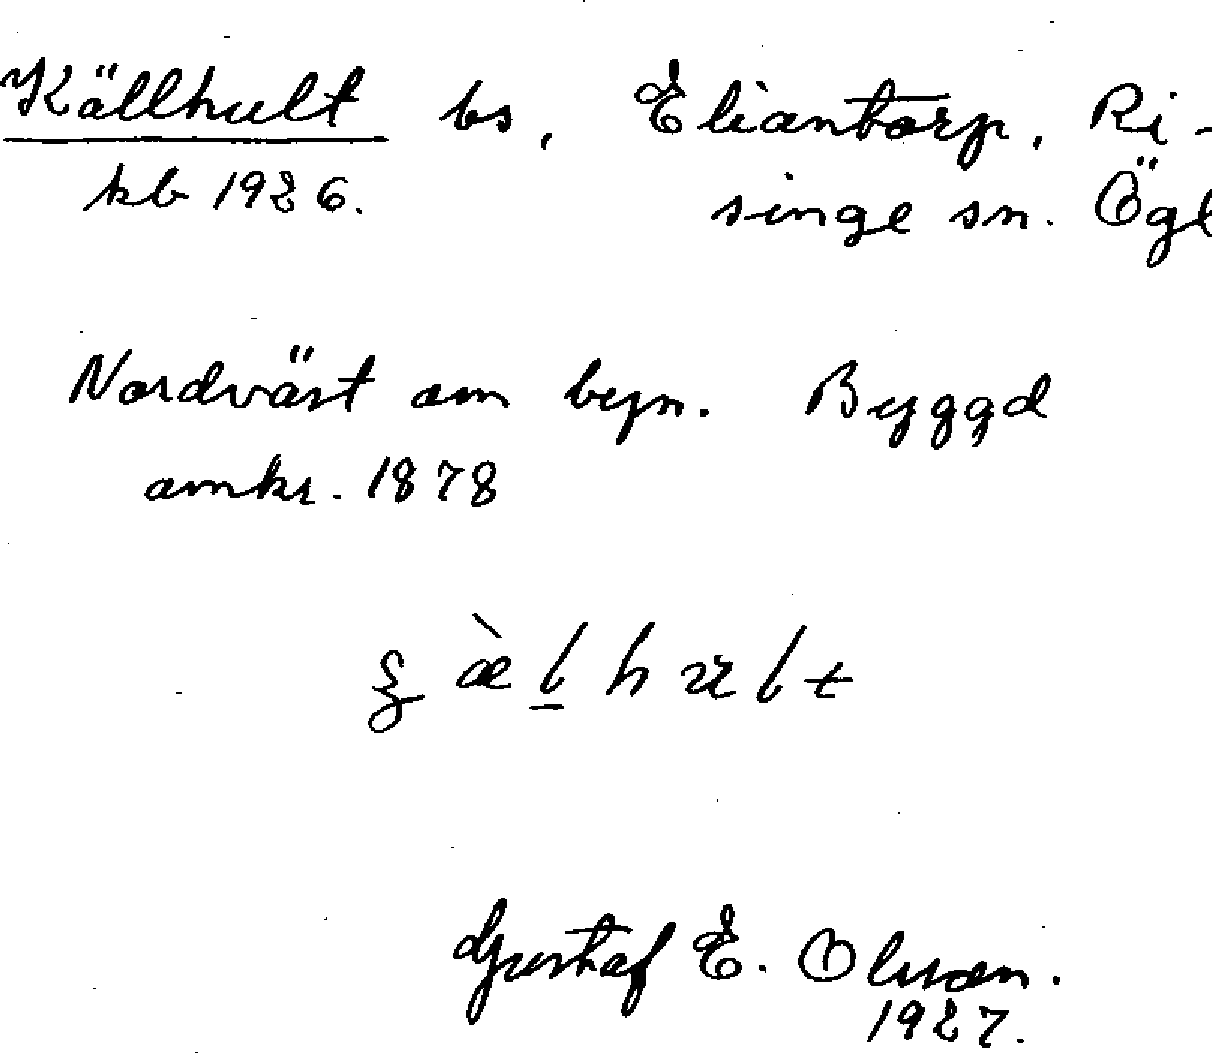 Källhult bs, Eliantorp, Ri-
kb 1926. singe sn. Ögl
Nordväst om byn. Byggd
omkr. 1878
Gustaf E. Olsson.
1927.